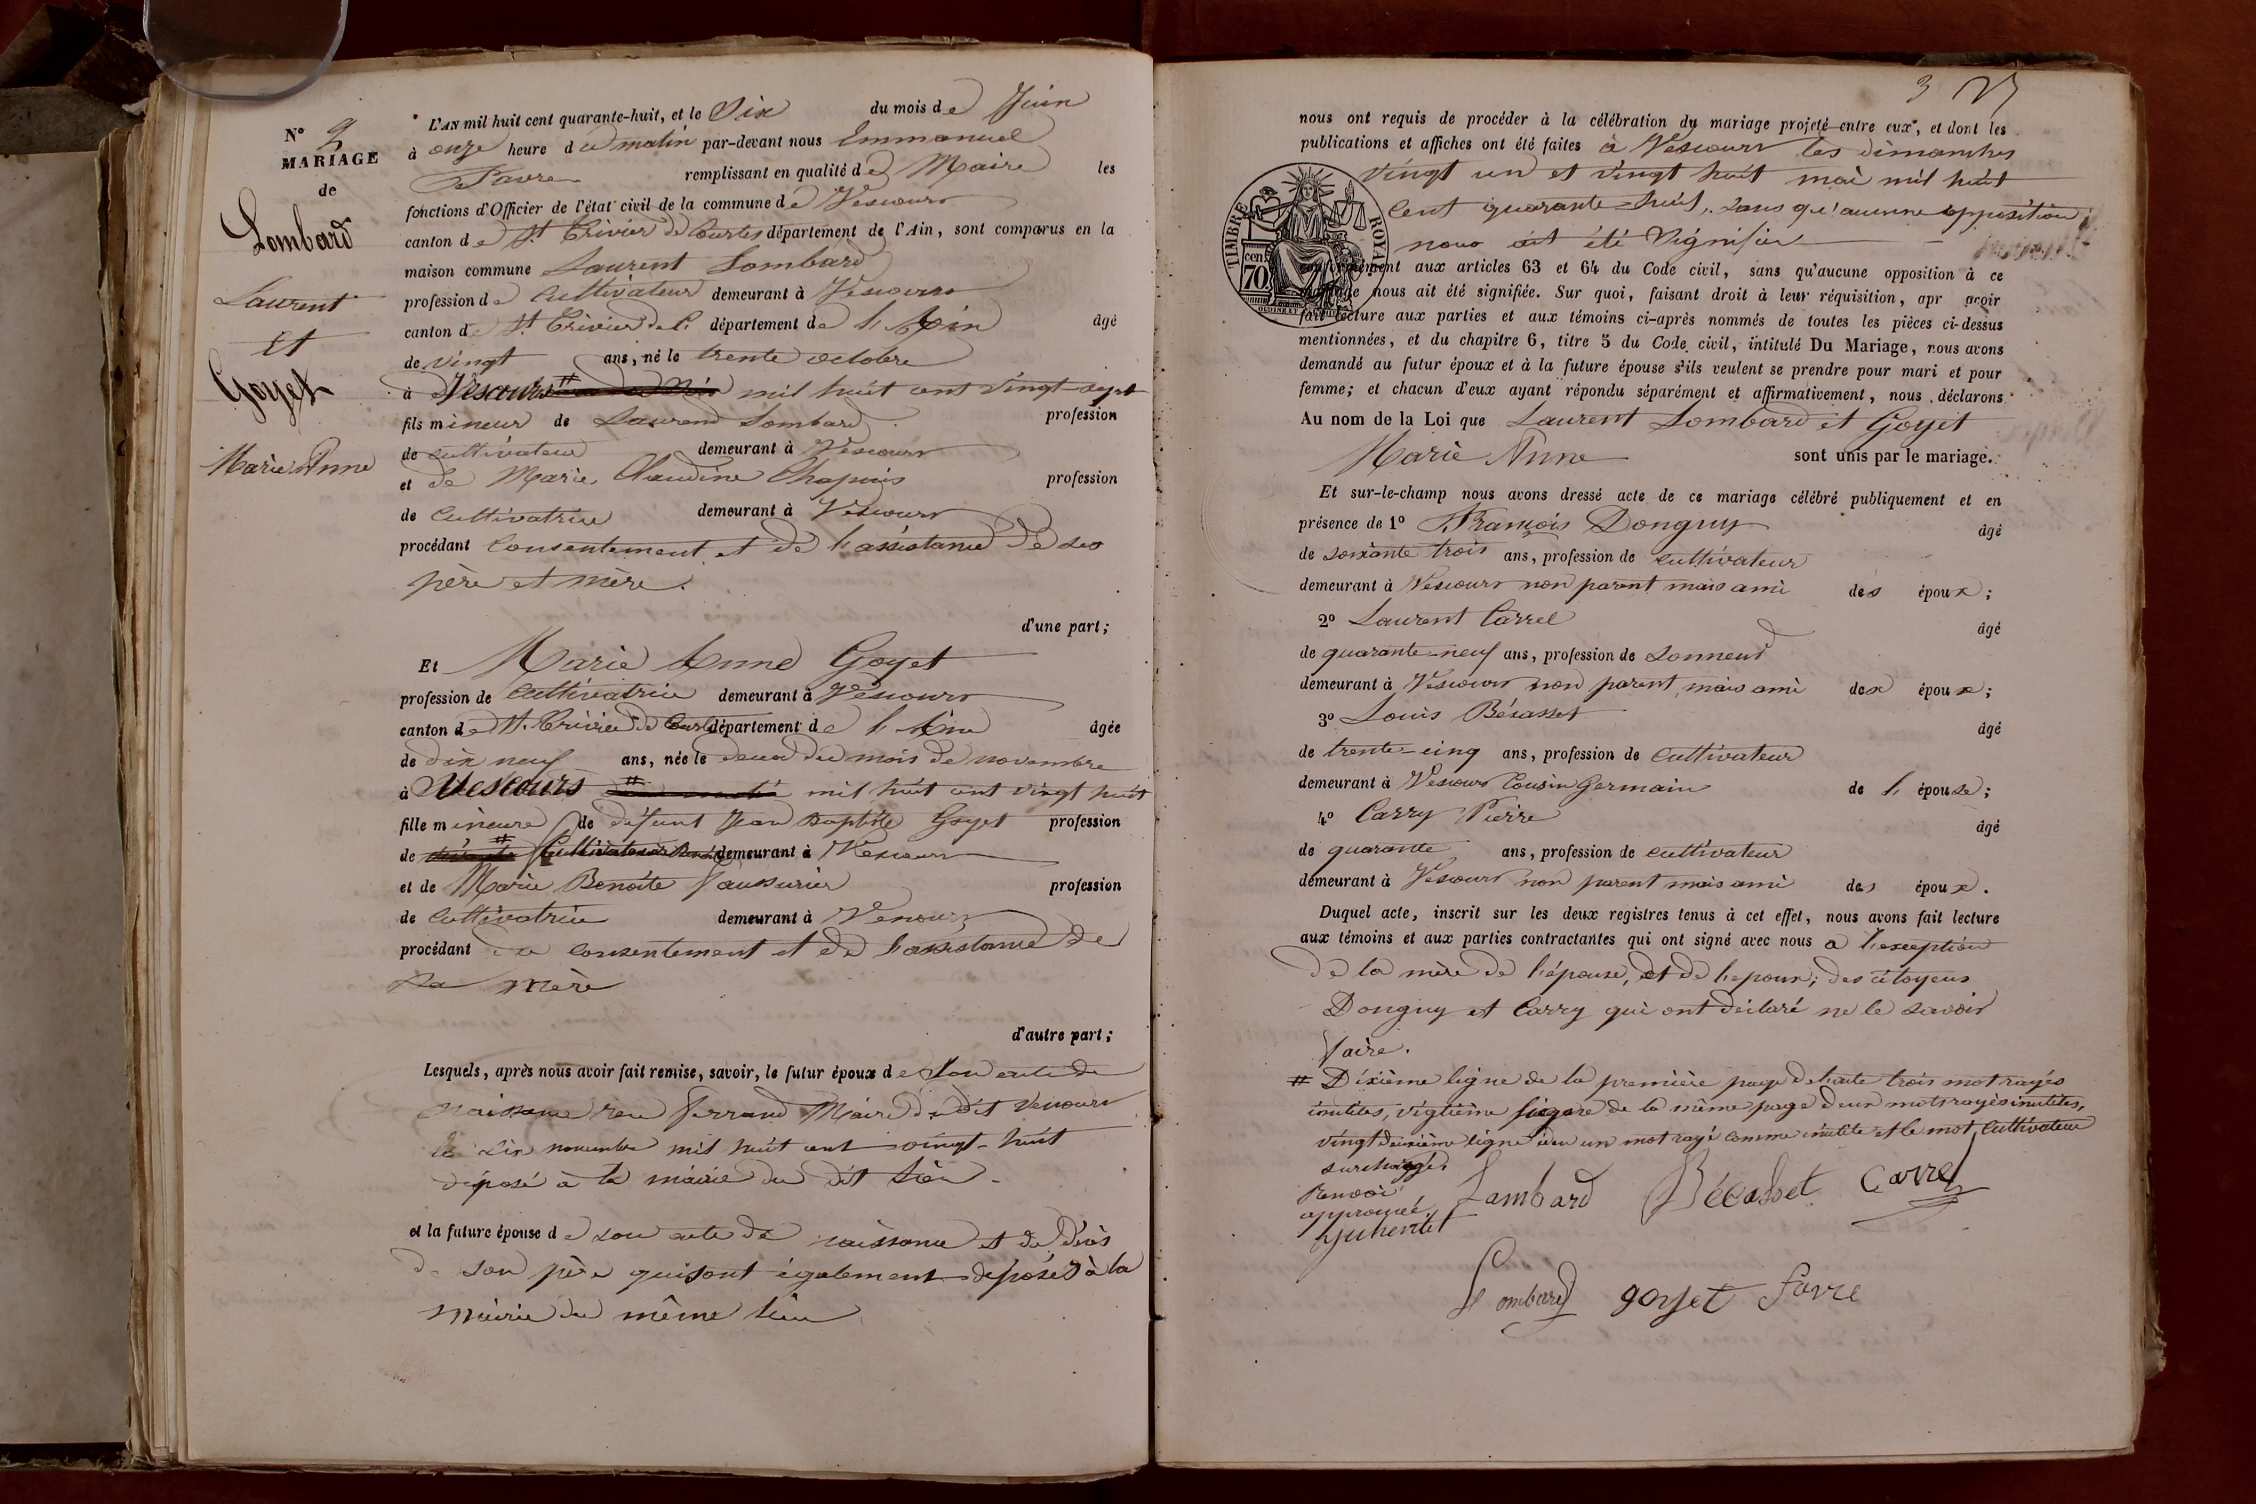 N° 2
MARIAGE
de
Lombard
Laurent
et
Goyet
Marie Anne
L'AN mil huit cent quarante-huit, et le Six du mois de Juin
à onze heure du matin par-devant nous Emmanuel
Favre remplissant en qualité de Maire les
fonctions d'Officier de l'état civil de la commune de Vescours
canton de St Trivier de Courtes département de l'Ain, sont comparus en la
maison commune Laurent Lombard
profession de Cultivateur demeurant à Vescours
canton de St Trivier de C. département de l'Ain âgé
de vingt ans, né le trente octobre
à Vescours # mil huit cent vingt-sept
fils mineur de Laurent Lombard profession
de cultivateur demeurant à Vescours
et de Marie Claudine Chapuis profession
de Cultivatrice demeurant à Vescours
procédant consentement et de l'assistance de ses
père et mère.
d'une part;
Et Marie Anne Goyet
profession de Cultivatrice demeurant à Vescours
canton de St. Trivier de Courtes département de l'Ain âgée
de dix neuf ans, née le deux du mois de novembre
à Vescours # mil huit cent vingt huit
fille mineure de défunt Jean Baptiste Goyet profession
de # Cultivateur demeurant à Vescours
et de Marie Benoite Vaussurier profession
de Cultivatrice demeurant à Vescours
procédant du consentement et de l'assistance de
sa mère
d'autre part;
Lesquels, après nous avoir fait remise, savoir, le futur époux de son acte de
naissance Ferrand Maire du dit Vescours
le novembre mil huit cent vingt-huit
déposé à la mairie du dit lieu.
et la future épouse de son acte de naissance et de décès
de son père qui sont également déposés à la
Mairie du même lieu
3
nous ont requis de procéder à la célébration du mariage projeté entre eux, et dont les
publications et affiches ont été faites à Vescours les dimanches
vingt un et vingt huit mai mil huit
cent quarante-huit, sans qu'aucune opposition
nous ait été signifiée
TIMBRE ROYAL
70 cen
conformément aux articles 63 et 64 du Code civil, sans qu'aucune opposition à ce
mariage nous ait été signifiée. Sur quoi, faisant droit à leur réquisition, apr avoir
fait lecture aux parties et aux témoins ci-après nommés de toutes les pièces ci-dessus
mentionnées, et du chapitre 6, titre 5 du Code civil, intitulé Du Mariage, nous avons
demandé au futur époux et à la future épouse s'ils veulent se prendre pour mari et pour
femme; et chacun d'eux ayant répondu séparément et affirmativement, nous déclarons
Au nom de la Loi que Laurent Lombard et Goyet
Marie Anne sont unis par le mariage.
Et sur-le-champ nous avons dressé acte de ce mariage célébré publiquement et en
présence de 1° François Donguy âgé
de soixante trois ans, profession de cultivateur
demeurant à Vescours non parent mais ami des époux;
2° Laurent Carrel âgé
de quarante-neuf ans, profession de Sonneur
demeurant à Vescours non parent, mais ami des époux;
3° Louis Bécasset âgé
de trente-cinq ans, profession de Cultivateur
demeurant à Vescours Cousin Germain de l'épouse;
4° Carry Pierre âgé
de quarante ans, profession de cultivateur
demeurant à Vescours non parent mais ami des époux.
Duquel acte, inscrit sur les deux registres tenus à cet effet, nous avons fait lecture
aux témoins et aux parties contractantes qui ont signé avec nous a l'exception
de la mère de l'épouse, et de l'epoux; des citoyens
Donguy et Carry qui ont déclaré ne le savoir
faire.
# Dixième ligne de la première page trois mot rayés
inutiles, de la même page deux mots rayés inutiles,
vingt deuxième ligne un mot rayé comme inutile et le mot Cultivateur
surchargé.
Renvoi
approuvé.
Lombard Bécasset Carrel
Lombard goyet favre